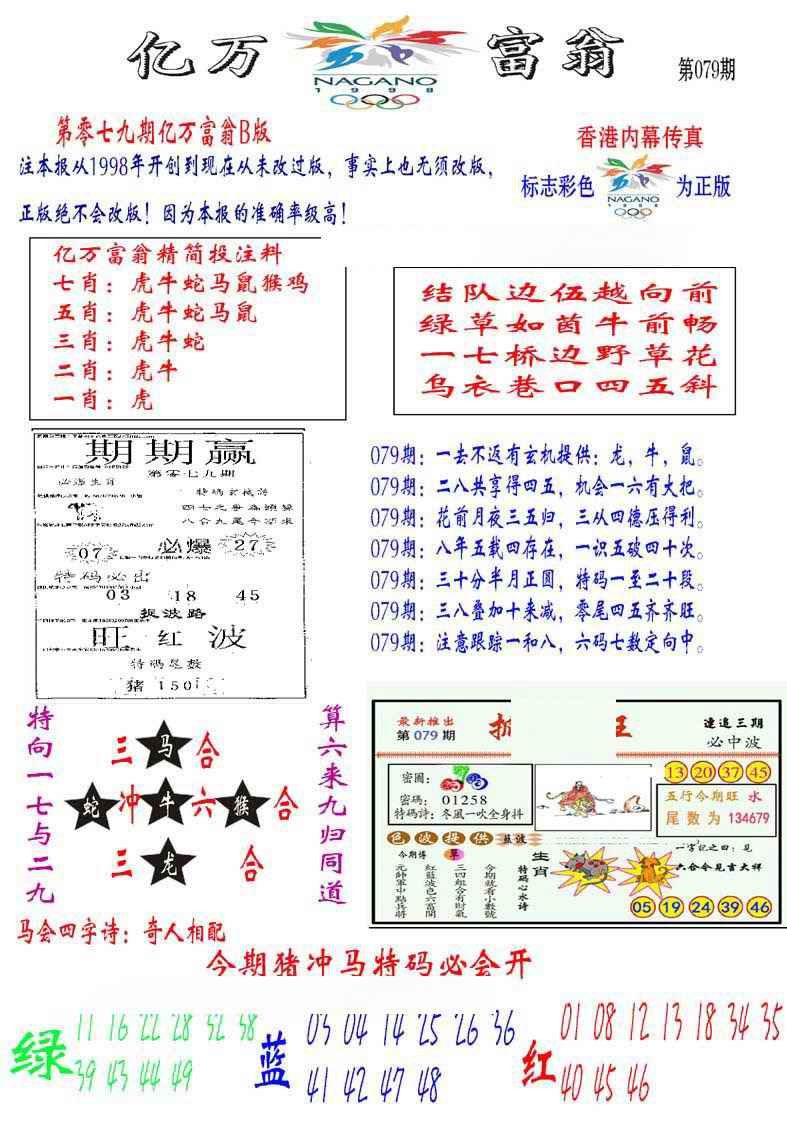 亿万富翁
NAGANO
1998
第079期
第零七九期亿万富翁B版
注本报从1998年开创到现在从未改过版，事实上也无须改版，
正版绝不会改版！因为本报的准确率级高！
香港内幕传真
标志彩色
NAGANO
1998
为正版
亿万富翁精简投注料
七肖：虎牛蛇马鼠猴鸡
五肖：虎牛蛇马鼠
三肖：虎牛蛇
二肖：虎牛
一肖：虎
结队边伍越向前
绿草如茵牛前畅
一七桥边野草花
乌衣巷口四五斜
期期赢
第零七九期
必爆
07
27
特码必出
03 18 45
捉波路
旺红波
特码尾数
猪150
079期：一去不返有玄机提供：龙，牛，鼠。
079期：二八共享得四五，机会一六有大把。
079期：花前月夜三五归，三从四德压得利。
079期：八年五载四存在，一识五破四十次。
079期：三十分半月正圆，特码一至二十段。
079期：三八叠加十来减，零尾四五齐齐旺。
079期：注意跟踪一和八，六码七数定向中。
特向一七与二九
三马合
蛇冲牛六猴合
三龙合
算六来九归同道
最新推出
第079期
連追三期
必中波
密圖：
密碼：01258
特碼詩：冬風一吹全身抖
13 20 37 45
五行今期旺 水
尾数为 134679
色波提供
藍波
今期博
草
元帥軍中點兵將
紅藍波色六富開
三四組合有財氣
今期就看小數號
特码心水诗
生肖
一字記之曰：見
六合令見吉大祥
05 19 24 39 46
马会四字诗：奇人相配
今期猪冲马特码必会开
绿
11 16 22 28 32 38
39 43 44 49
蓝
03 04 14 25 26 36
41 42 47 48
红
01 08 12 13 18 34 35
40 45 46